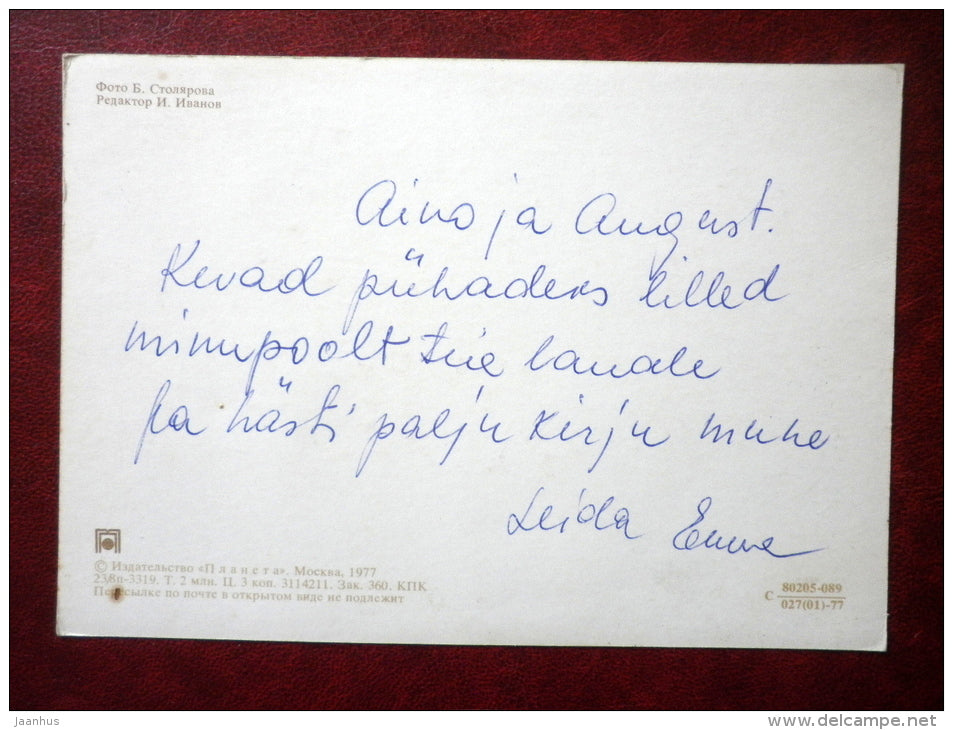 Фото Б. Столярова
Редактор И. Иванов
Aino ja August.
Kevad pühadeks lilled
minupoolt teie lauale
ja hästi palju kirju mune
Leida Emme
© Издательство «Планета». Москва, 1977
23/8п-3319. Т. 2 млн. Ц. 3 коп. 3114211. Зак. 360. КПК
Пересылке по почте в открытом виде не подлежит
С 80205-089
027(01)-77
jaanhus
www.delcampe.net